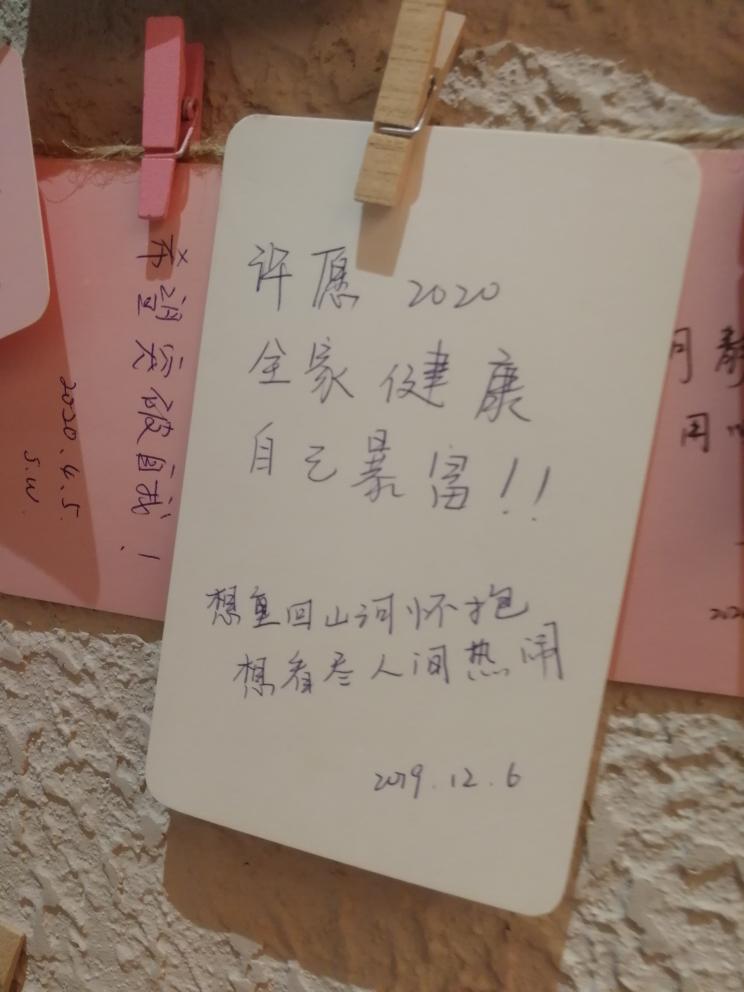 许愿 2020
全家健康
自己暴富!!
想重回山河怀抱
想看尽人间热闹
2019.12.6
希望突破自我!
2020.4.5
S.W
月静
用